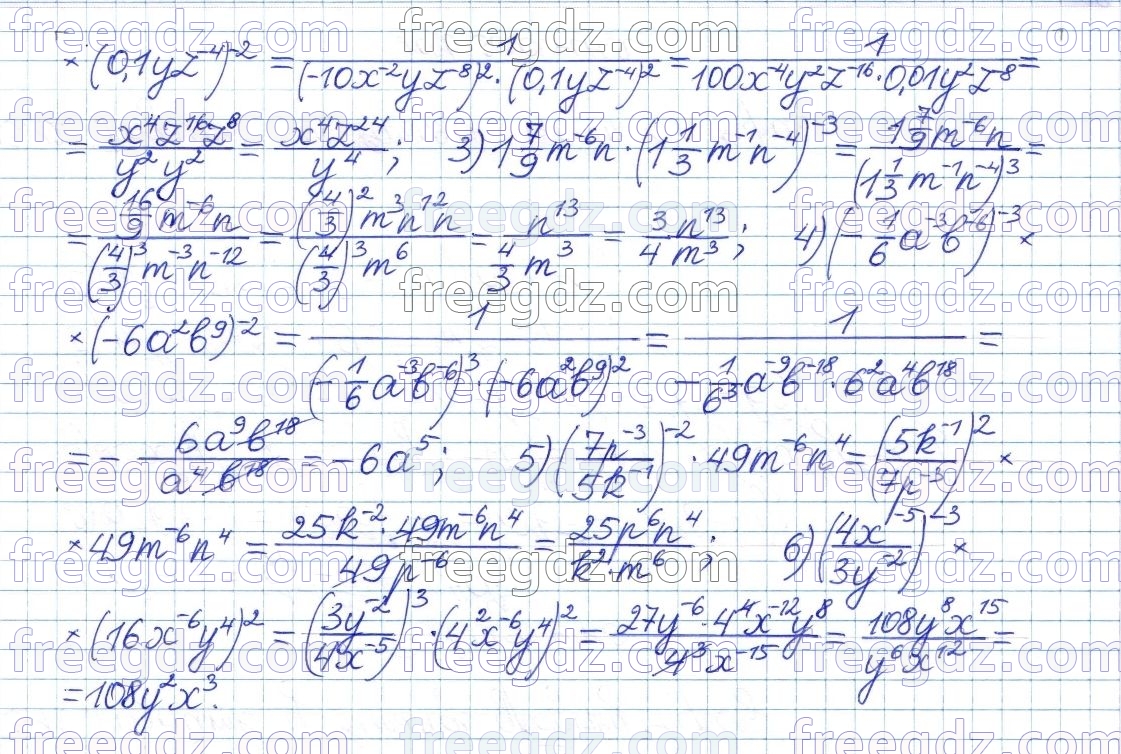 × (0,1yz⁻⁴)⁻² = 1/((-10x⁻²yz⁻⁸)² · (0,1yz⁻⁴)²) = 1/(100x⁻⁴y²z⁻¹⁶ · 0,01y²z⁻⁸) =
= x⁴z¹⁶z⁸/(y²y²) = x⁴z²⁴/y⁴; 3) 1 7/9 m⁻⁶n · (1 1/3 m⁻¹n⁻⁴)⁻³ = (1 7/9 m⁻⁶n)/(1 1/3 m⁻¹n⁻⁴)³ =
= (16/9 m⁻⁶n)/((4/3)³m⁻³n⁻¹²) = ((4/3)²m³n¹²n)/((4/3)³m⁶) = n¹³/(4/3 m³) = 3n¹³/4m³; 4) (-1/6 a⁻³b⁻⁶)⁻³ ×
× (-6a²b⁹)⁻² = 1/((-1/6 a⁻³b⁻⁶)³ · (-6a²b⁹)²) = 1/(-1/6³ a⁻⁹b⁻¹⁸ · 6²a⁴b¹⁸) =
= - 6a⁹b¹⁸/(a⁴b¹⁸) = -6a⁵; 5) (7p⁻³/5k⁻¹)⁻² · 49m⁻⁶n⁴ = (5k⁻¹/7p⁻³)² ×
× 49m⁻⁶n⁴ = (25k⁻² · 49m⁻⁶n⁴)/(49p⁻⁶) = 25p⁶n⁴/(k² · m⁶); 6) (4x⁻⁵/3y⁻²)⁻³ ×
× (16x⁻⁶y⁴)² = (3y⁻²/4x⁻⁵)³ · (4²x⁻⁶y⁴)² = (27y⁻⁶ · 4⁴x⁻¹²y⁸)/(4³x⁻¹⁵) = 108y⁸x¹⁵/(y⁶x¹²) =
= 108y²x³.